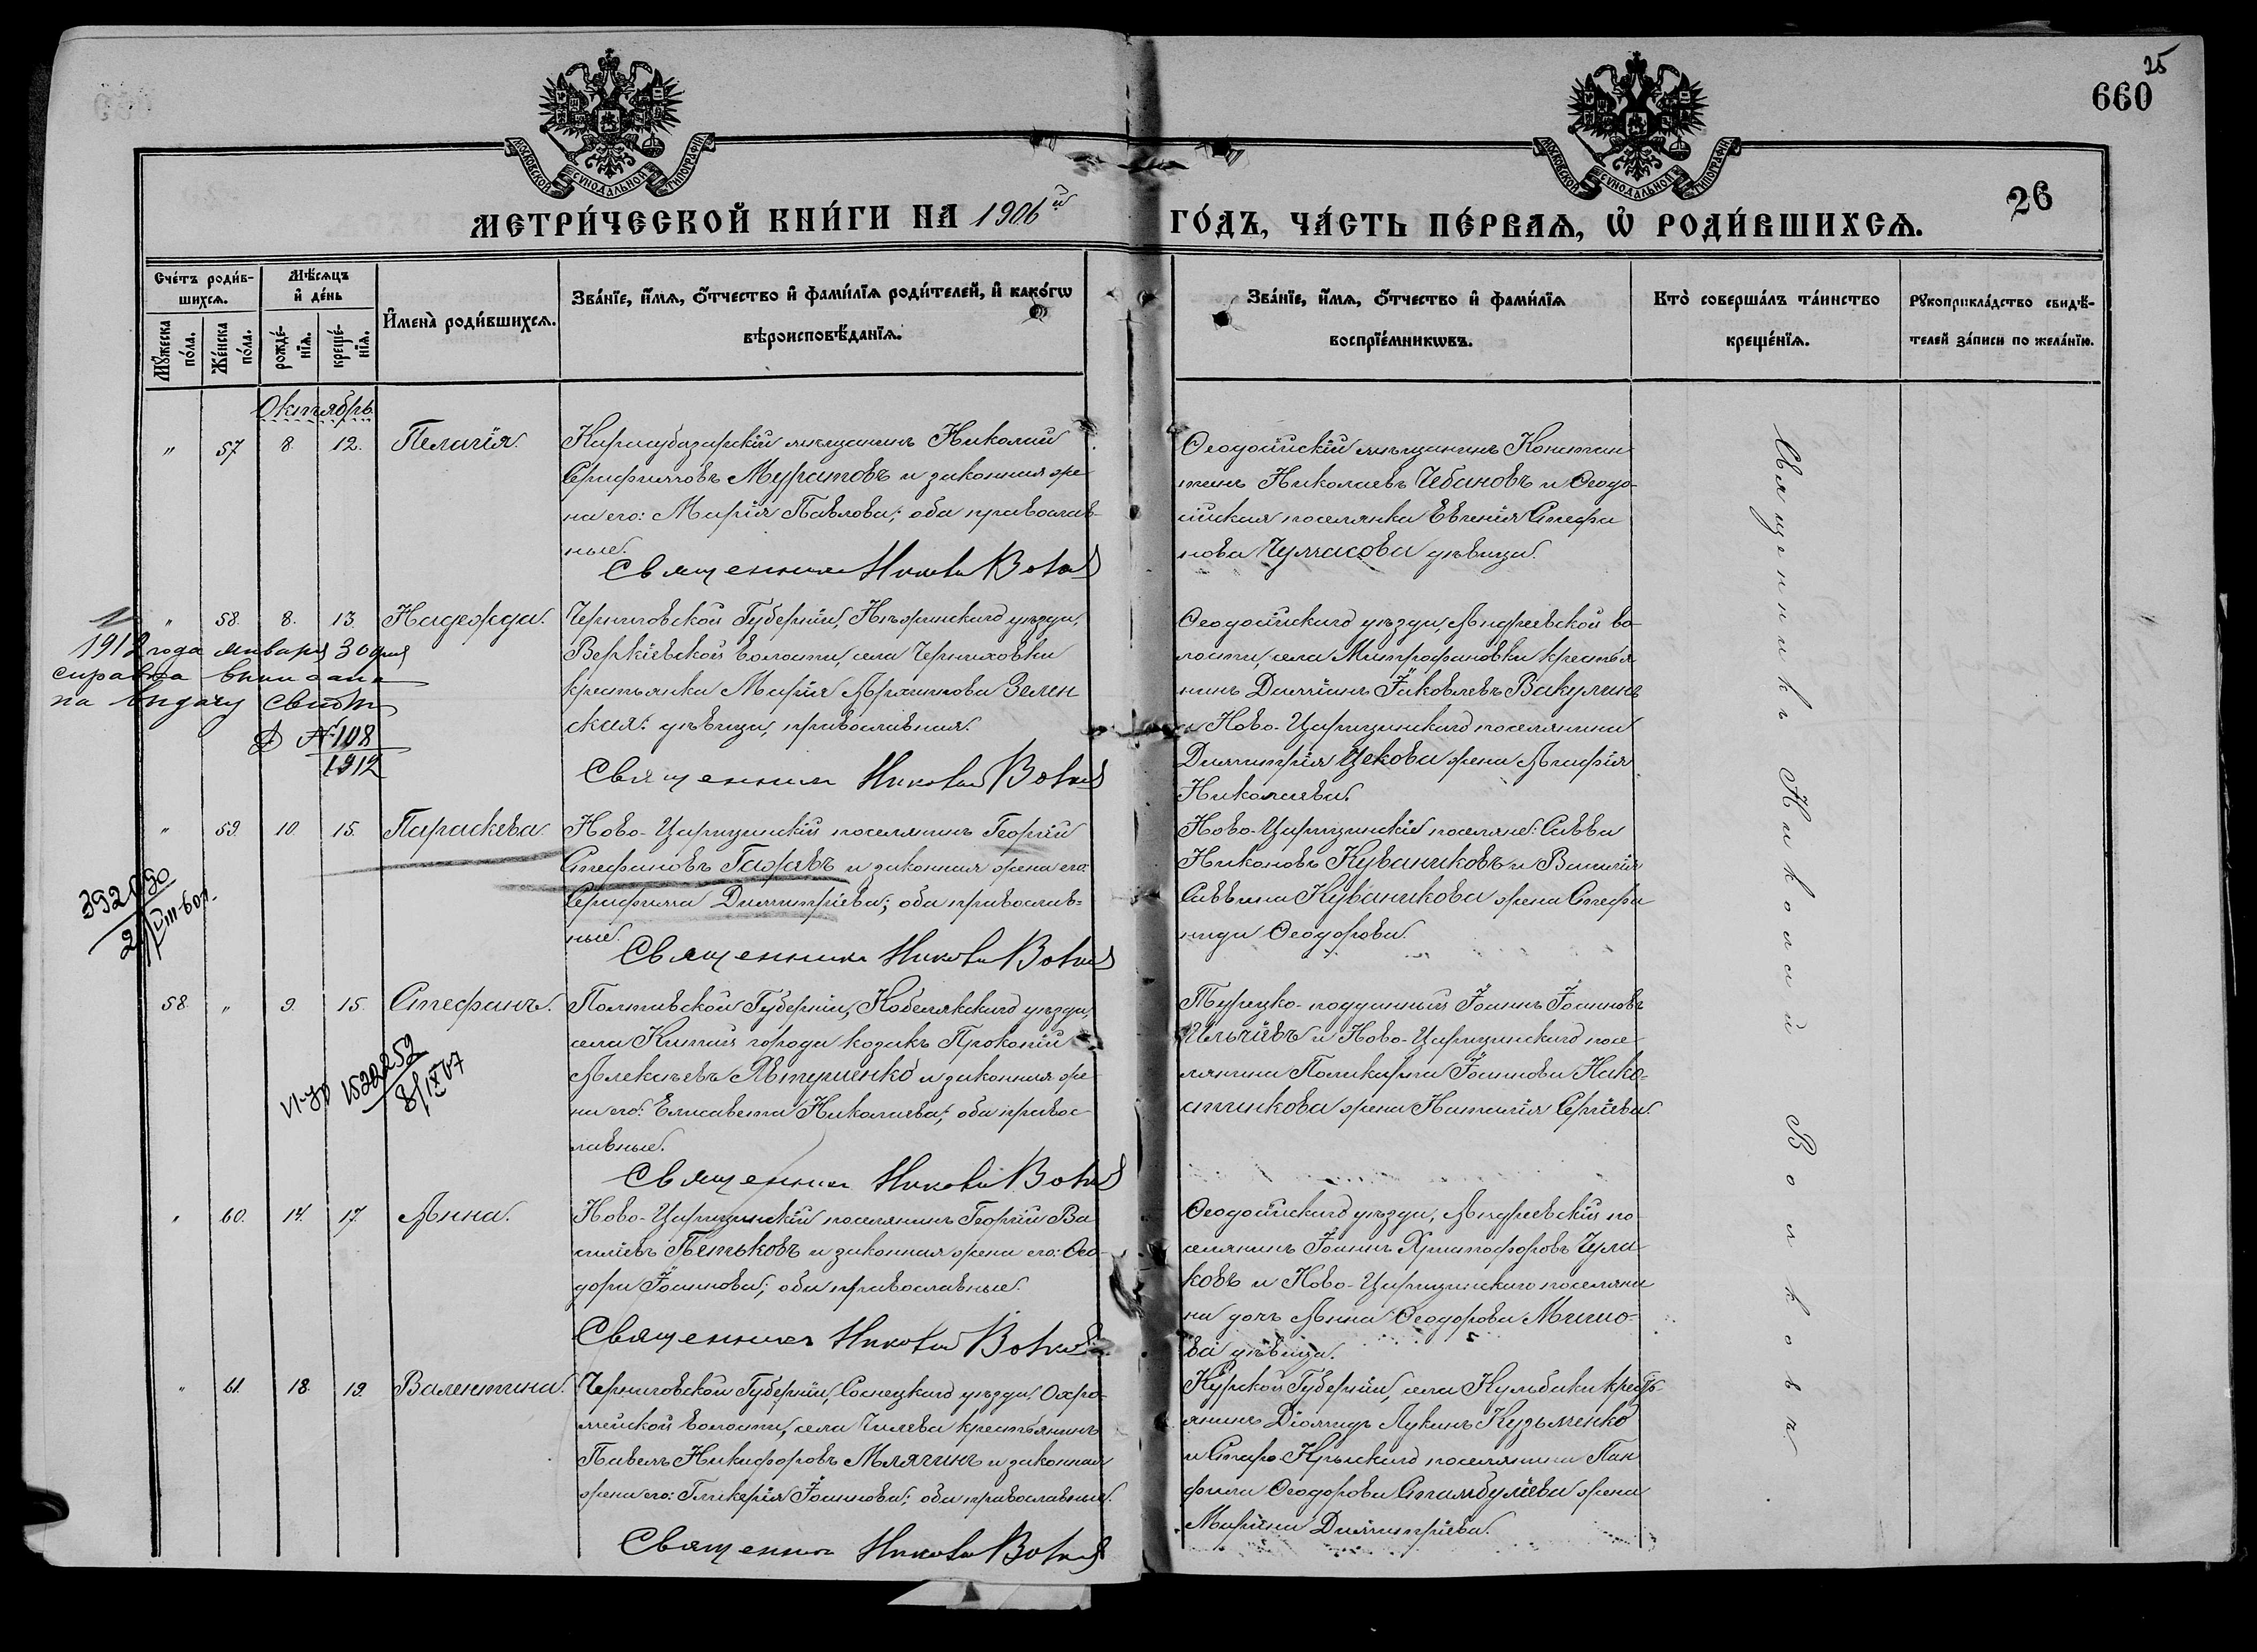 25
660
26
МОСКОВСКОЙ СѴНОДАЛЬНОЙ ТИПОГРАФІИ
МОСКОВСКОЙ СѴНОДАЛЬНОЙ ТИПОГРАФІИ
МЕТРИ́ЧЕСКОЙ КНИ́ГИ НА 1906й ГО́ДЪ, ЧА́СТЬ ПЕ́РВАѦ, Ѡ҆ РОДИ́ВШИХСѦ.
Сче́тъ роди́в-
шихсѧ.
Мꙋ́жеска по́ла.
Же́нска по́ла.
Мѣ́сѧцъ
и҆ де́нь
рожде́-
нїѧ.
креще́-
нїѧ.
И҆мена̀ роди́вшихсѧ.
Зва́нїе, и҆́мѧ, ѻ҆́тчество и҆ фами́лїѧ роди́телей, и҆ како́гѡ
вѣроисповѣ́данїѧ.
Зва́нїе, и҆́мѧ, ѻ҆́тчество и҆ фами́лїѧ
воспрїе́мникѡвъ.
Кто̀ соверша́лъ та́инство
креще́нїѧ.
Рꙋкоприкла́дство свидѣ́-
телей за́писи по жела́нїю.
Октябрь
" 57 8. 12. Пелагія.
Карасубазарскій мѣщанинъ Николай
Серафимовъ Муратовъ и законная же-
на его: Марія Павлова; оба православ-
ные.
Священникъ Николай Волковъ
Ѳеодосійскій мѣщанинъ Констан-
тинъ Николаевъ Чебановъ и Ѳеодо-
сійская поселянка Евгенія Стефа
нова Чумасова дѣвица.
" 58. 8. 13. Надежда.
Черниговской Губерніи, Нѣжинскаго уѣзда,
Веркіевской волости, села Черняховки
крестьянка Марія Архипова Зелен
ская: дѣвица, православная.
Священникъ Николай Волковъ
Ѳеодосійскаго уѣзда, Андреевской во-
лости, села Митрофановки крестья
нинъ Даміанъ Іаковлевъ Вакулинъ
и Ново-Царицынскаго поселянина
Димитрія Цекова жена Агафія
Николаева.
1912 года января 30 дня
справка выписана
на выдачу свидѣт
№ 108
1912
" 59. 10. 15. Параскева.
Ново-Царицынскій поселянинъ Георгій
Стефановъ Гаржевъ и законная жена его:
Серафима Димитріева; оба православ-
ные.
Священникъ Николай Волковъ
Ново-Царицынскіе поселяне: Савва
Никоновъ Куваниковъ и Василія
Саввина Куваникова жена Стефа
нида Ѳеодорова.
392090
58. " 9. 15. Стефанъ.
Полтавской Губерніи, Кобелякскаго уѣзда,
села Китай города козакъ Прокопій
Алексѣевъ Явтушенко и законная же
на его: Елисавета Николаева; оба правос-
лавные.
Священникъ Николай Волковъ
Турецко-подданный Іоаннъ Іоанновъ
Ильчіевъ и Ново-Царицынскаго посе-
лянина Поликарпа Іоаннова Нако-
стинкова жена Наталія Сергіева.
1522252
8/IX 47
" 60. 14. 17. Анна.
Ново-Царицынскій поселянинъ Георгій Ва
силіевъ Пеньковъ и законная жена его: Ѳео-
дора Іоаннова; оба православные.
Священникъ Николай Волковъ
Ѳеодосійскаго уѣзда, Андреевскій по
селянинъ Іоаннъ Христофоровъ Чула-
ковъ и Ново-Царицынскаго поселяни
на дочь Анна Ѳеодорова Мишо-
ва дѣвица.
" 61. 18. 19. Валентина.
Черниговской Губерніи, Сосницкаго уѣзда, Охра-
мейской волости, села Чилева крестьянинъ
Павелъ Никифоровъ Млягинъ и законная
жена его: Гликерія Іоаннова; оба православные.
Священникъ Николай Волковъ
Курской Губерніи, села Кульбаки кресть-
янинъ Діомидъ Лукинъ Кузьменко
и Старо-Крымскаго поселянина Пан
фила Ѳеодорова Стамбуліева жена
Марина Димитріева.
Священникъ Николай Волковъ